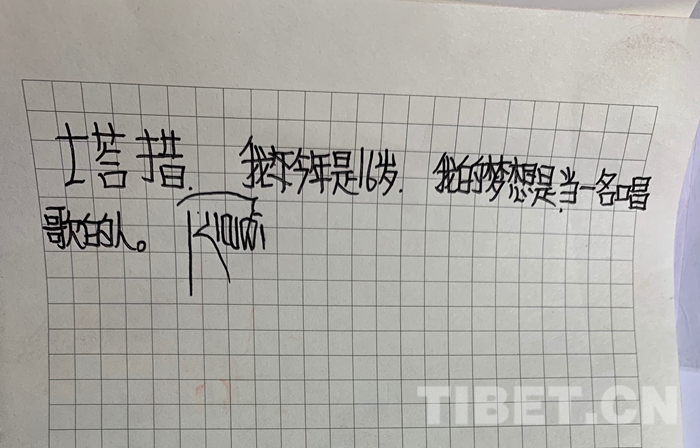 塔措. 我今年是16岁. 我的梦想是当一名唱
歌的人。
TIBET.CN